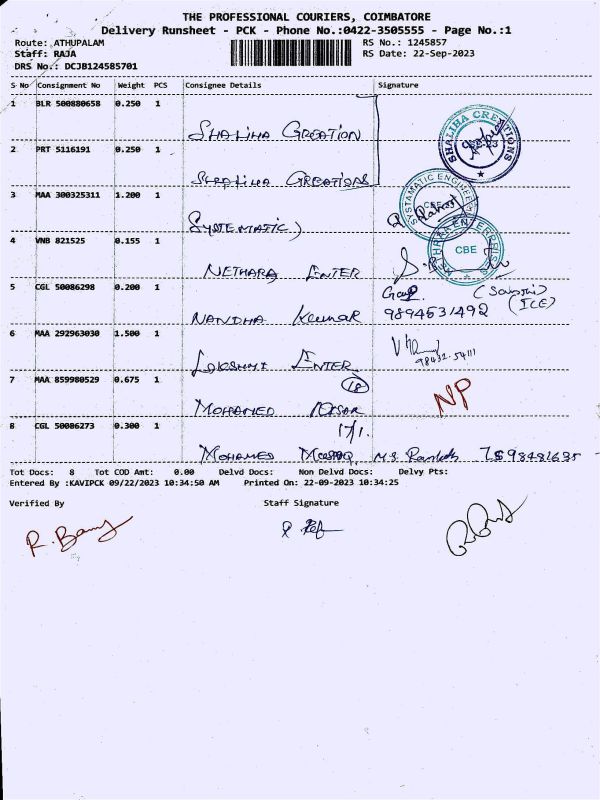 THE PROFESSIONAL COURIERS, COIMBATORE
Delivery Runsheet - PCK - Phone No.:0422-3505555 - Page No.:1
Route: ATHUPALAM RS No.: 1245857
Staff: RAJA RS Date: 22-Sep-2023
DRS No.: DCJB124585701
S No Consignment No Weight PCS Consignee Details Signature
1 BLR 500880658 0.250 1
SHALIHA CREATION
SHALIHA CREATIONS
2 PRT 5116191 0.250 1
SHALIHA CREATIONS
3 MAA 300325311 1.200 1
SYSTEMATIC)
SYSTAMATIC ENGINEE
CBE
4 VNB 821525 0.155 1
NETHARA ENTER
ENTERPRISES
CBE
5 CGL 50086298 0.200 1
NANDHA Kumar
9894531492
(ICE)
6 MAA 292963030 1.500 1
LAKSHMI ENTER
98432.54111
7 MAA 859980529 0.675 1
18
MOHAMED
NP
8 CGL 50086273 0.300 1
17/1.
MOHAMED
M.S.
Tot Docs: 8 Tot COD Amt: 0.00 Delvd Docs: Non Delvd Docs: Delvy Pts:
Entered By :KAVIPCK 09/22/2023 10:34:50 AM Printed On: 22-09-2023 10:34:25
Verified By Staff Signature